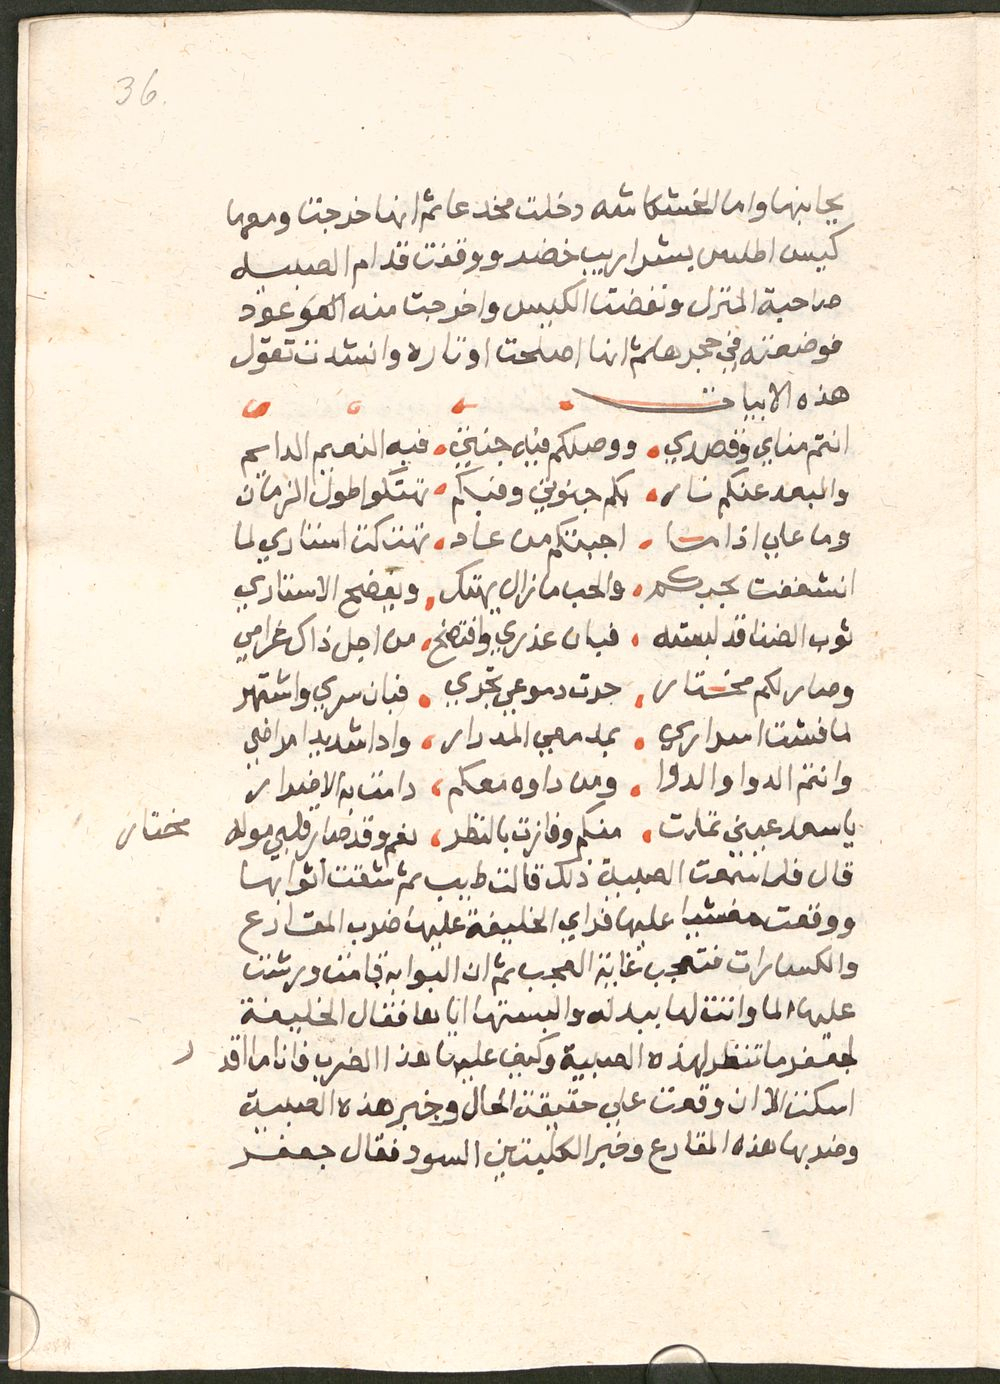 36.
بجانبها واما الخشكاشه دخلت مخدعا ثم انها خرجت ومعها
كيس اطلس بشراريب خضر ووقفت قدام الصبيه
صاحبة المنزل ونفضت الكيس واخرجت منه العود عود
فوضعته في حجرها ثم انها اصلحت اوتاره وانشدت تقول
هذه الابيات
انتم مناي وقصدي ووصلكم فيه جنتي فيه النعيم الدايم
والبعد عنكم نار بكم جنوني وفيكم تهتكوا طول الزمان
وما علي اذا احببتكم من عار تهتكت استاري لما
انشغفت بحبكم والحب مازال يهتك ويفضح الاستاري
ثوب الضنا قد لبسته فبان عذري وافتضح من اجل ذاك غرامي
وصار لكم مختار جرت دموعي تجري فبان سري واشتهر
لما فشت اسراري بدمعي المدرار واداشديد امراضي
وانتم الدوا والدوا ومن داوه معكم دامت به الاضرار
ياسعد عيني تمارت منكم وفازت بالنظر نعم وقد صار قلبي موله
مختار
قال فلما سمعت الصبية ذلك قالت طيب ثم شقت اثوابها
ووقعت مغشيا عليها فراي الخليفة عليها ضرب المقارع
والكسارات فتعجب غاية العجب ثم ان البوابه قامت ورشت
عليها الما واتت لها ببدله والبستها اياها فقال الخليفة
لجعفر ما تنظر لهذه الصبية وكيف عليها هذا الضرب فانا ما اقد
ر
اسكت الا ان وقعت علي حقيقة الحال وخبر هذه الصبية
وضربها هذه المقارع وخبر الكلبتين السود فقال جعفر